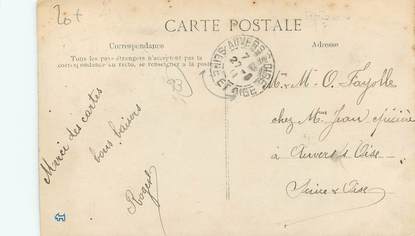 20+
CARTE POSTALE
Correspondance
Adresse
Tous les pays étrangers n'acceptent pas la
correspondance au recto, se renseigner à la poste
AUVERS
SEINE ET OISE
23
Merci des cartes
bons baisers
Roger
M. O. Fayolle
chez Mme Jean
à Auvers s Oise
Seine & Oise